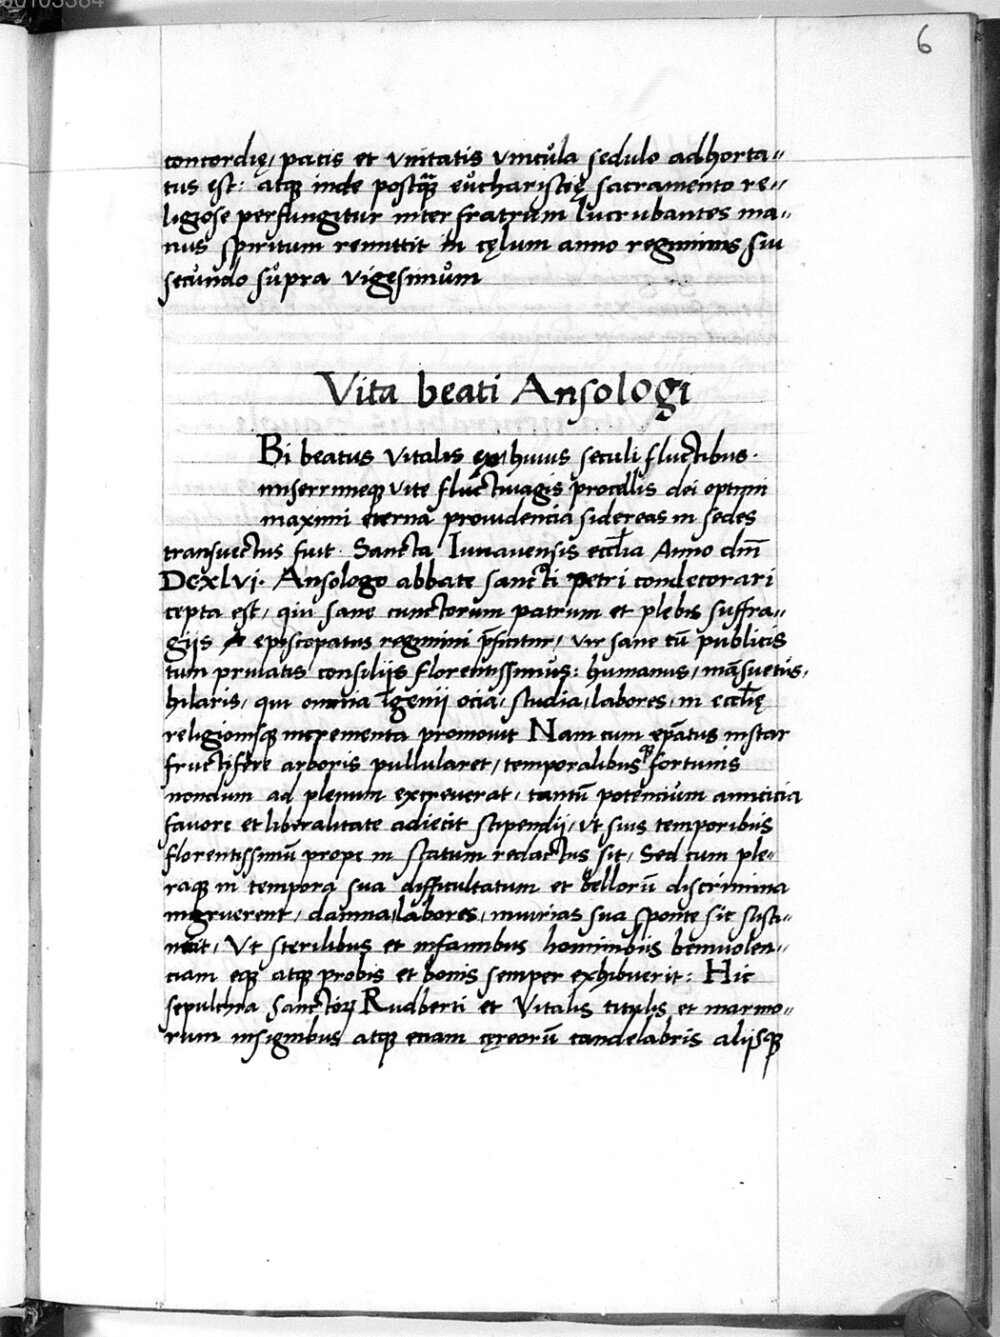 00103384
6
concordię, pacis et vnitatis vincůla sedulo adhorta„
tus est: atqꝫ inde postq̃ꝫ eůcharistię sacramento re„
ligiose perfungitur inter fratrum lucrubantes ma„
nus spiritum remittit in cęlum anno regiminis sui
secůndo sůpra vigesimům
Vita beati Ansologi
Bi beatus vitalis ex huius seculi fluctibus.
miserrimeqꝫ vite fluctiuagis procellis dei optimi
maximi eterna prouidencia sidereas in sedes
transuectus fuit. Sancta Iuuauensis eccl̃ia Anno dn̄i
Dcxlvi. Ansologo abbate sancti petri condecorari
cepta est, qui sane cunctorum patrum et plebis suffra„
giis episcopatus regimini p̄ficitur, vir sane cū publicis
tum priuatis consiliis florentissimůs: humanus, māsuetůs,
hilaris, qui omnia īgenij ocia, studia, labores, in eccl̃ię
religionisqꝫ incrementa promouit Nam cum ep̄atus instar
fructifere arboris pullularet, temporalibusqꝫ fortunis
nondum ad plenum excreuerat, tantū potencium amicicia
fauore et liberalitate adiecit stipendij, vt suis temporibůs
florentissimū prope in statum redactus sit, Sed cum ple„
raqꝫ in tempora sua difficultatum et bellorū discrimina
ingruerent, damna, labores, iniurias sua sponte sic susti„
nuit, Vt sterilibus et infamibus hominibůs beniuolen„
ciam eqꝫ atqꝫ probis et bonis semper exhibuerit: Hic
sepulchra Sanctorꝝ Rudberti et Vitalis titulis et marmo„
rum insignibus atqꝫ etiam cęreorū candelabris alijsqꝫ